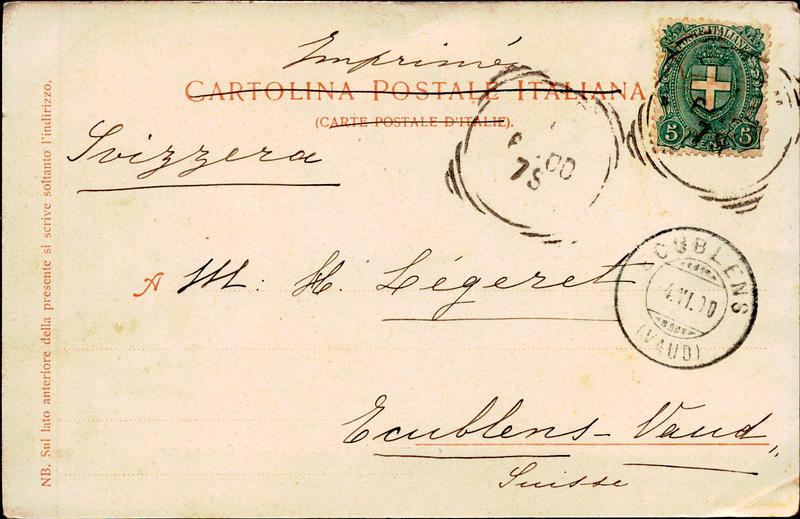 Imprimé
CARTOLINA POSTALE ITALIANA
(CARTE POSTALE D'ITALIE).
POSTE ITALIANE
5 5
00
78
Svizzera
NB. Sul lato anteriore della presente si scrive soltanto l'indirizzo.
A M: H. Légeret
ECUBLENS
4.VI.00
(VAUD)
Ecublens-Vaud,
Suisse